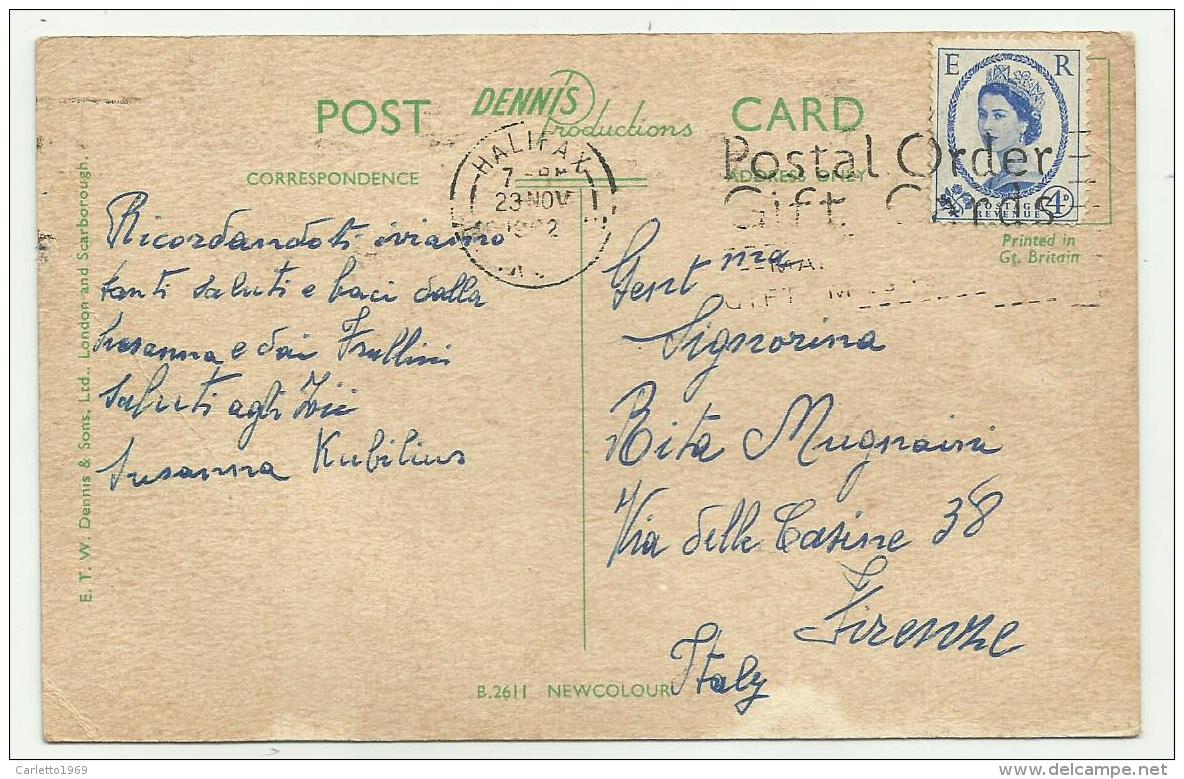 POST DENNIS Productions CARD
CORRESPONDENCE
ADDRESS ONLY
HALIFAX
23 NOV
Postal Order
Gift Cards
E R
POSTAGE REVENUE 4D
Printed in
Gt. Britain
Ricordandoti inviamo
tanti saluti e baci dalla
Susanna e dai Frullini
Saluti agli Zii
Susanna Kubilius
Gent ma
Signorina
Rita Mugnaini
Via delle Casine 38
Firenze
Italy
E. T. W. Dennis & Sons, Ltd., London and Scarborough.
B.2611 NEWCOLOUR
Carletto1969
delcampe.net